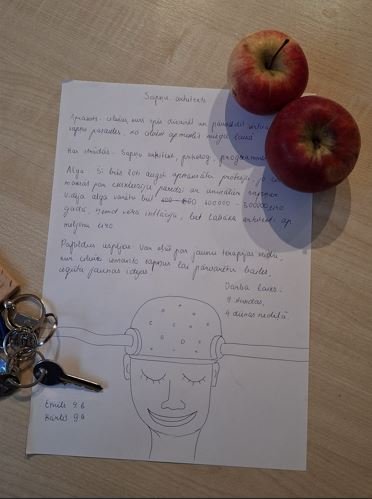 Sapņu arhitekts
Apraksts: cilvēks, kurš spēj dizainēt un pārveidot
sapņu pasaules, ko cilvēki apmeklē miega laikā
Kas strādās: Sapņu arhitekti, psihologi, programm
Alga: Šī būs ļoti augsti apmaksāta profesija, jo
maksās par ekskluzīvu pieredzi un unikāliem sapņiem.
Vidējā alga varētu būt 100000 - 300000 eiro
gadā, ņemot vērā inflāciju, bet labākie arhitekti ap
miljonu eiro
Papildus iespējas: Var kļūt par jaunu terapijas veidu,
kur cilvēki izmanto sapņus lai pārvarētu bailes,
iegūtu jaunas idejas
Darba laiks:
9 stundas,
4 dienas nedēļā
Emīls 9.b
9.b